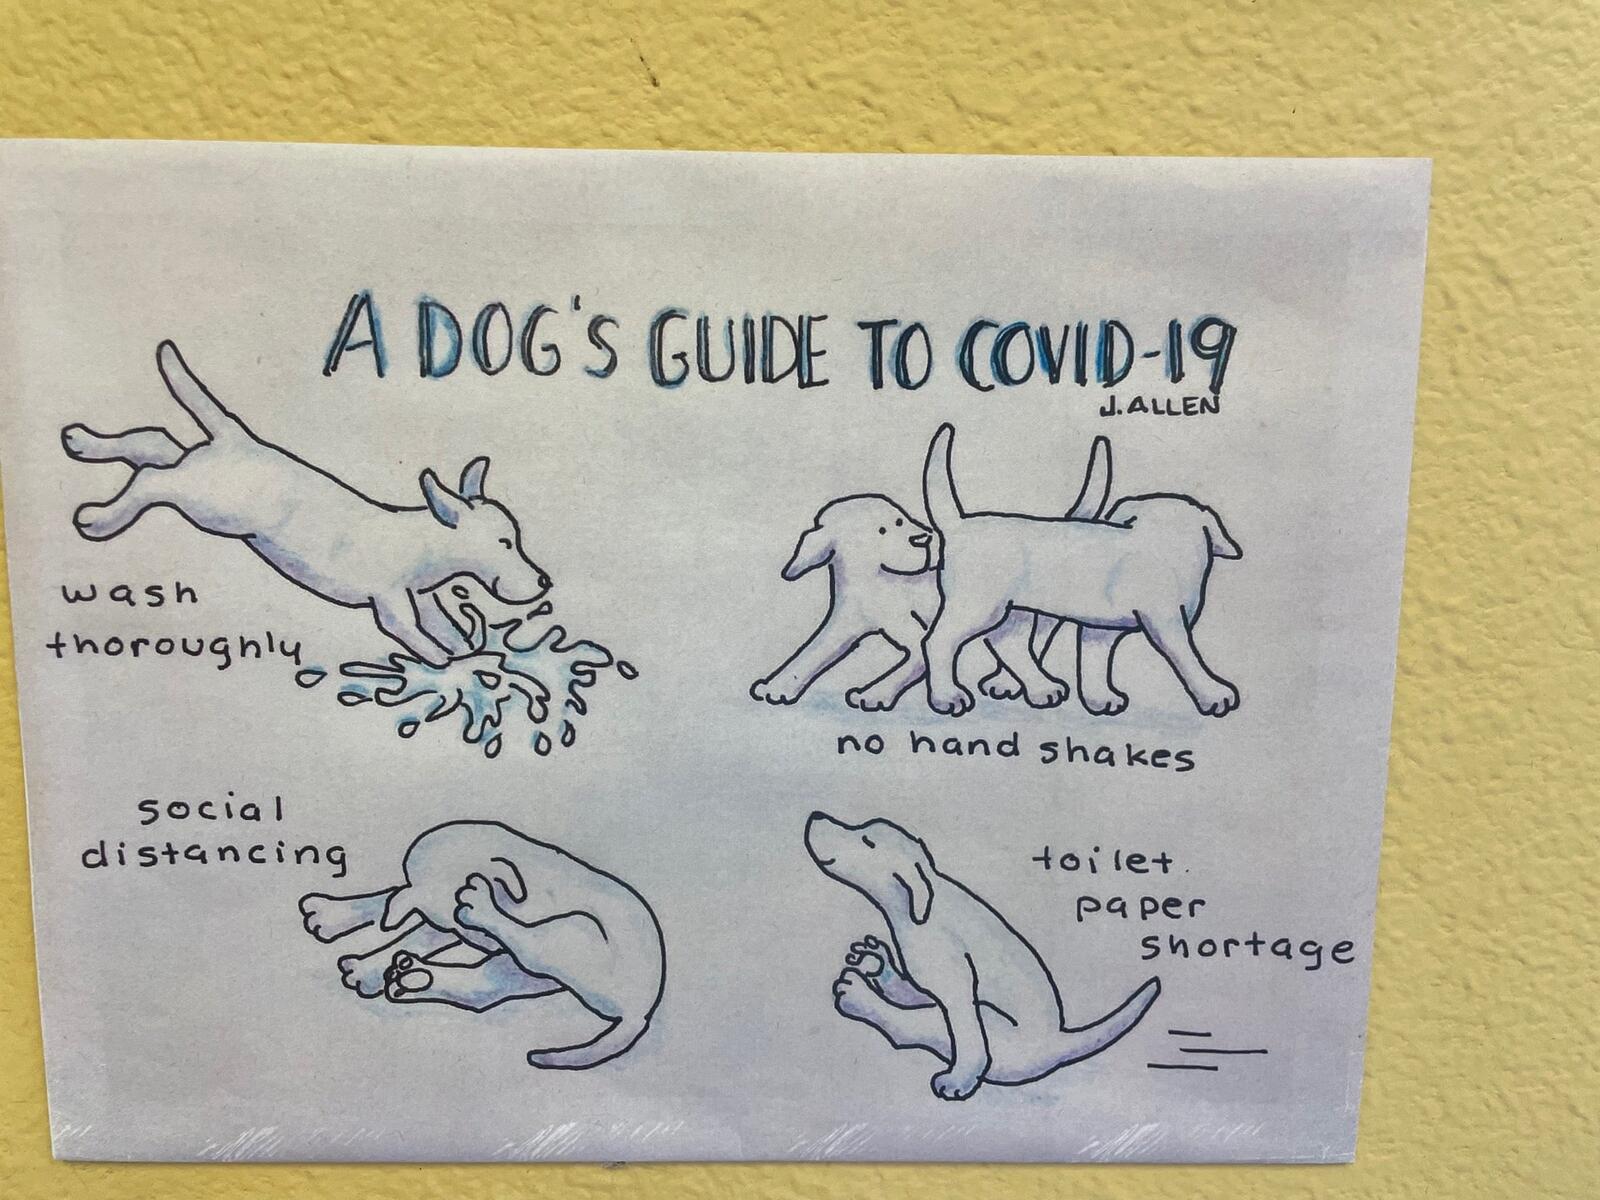 A DOG'S GUIDE TO COVID-19
J. ALLEN
wash
thoroughly
no hand shakes
social
distancing
toilet
paper
shortage